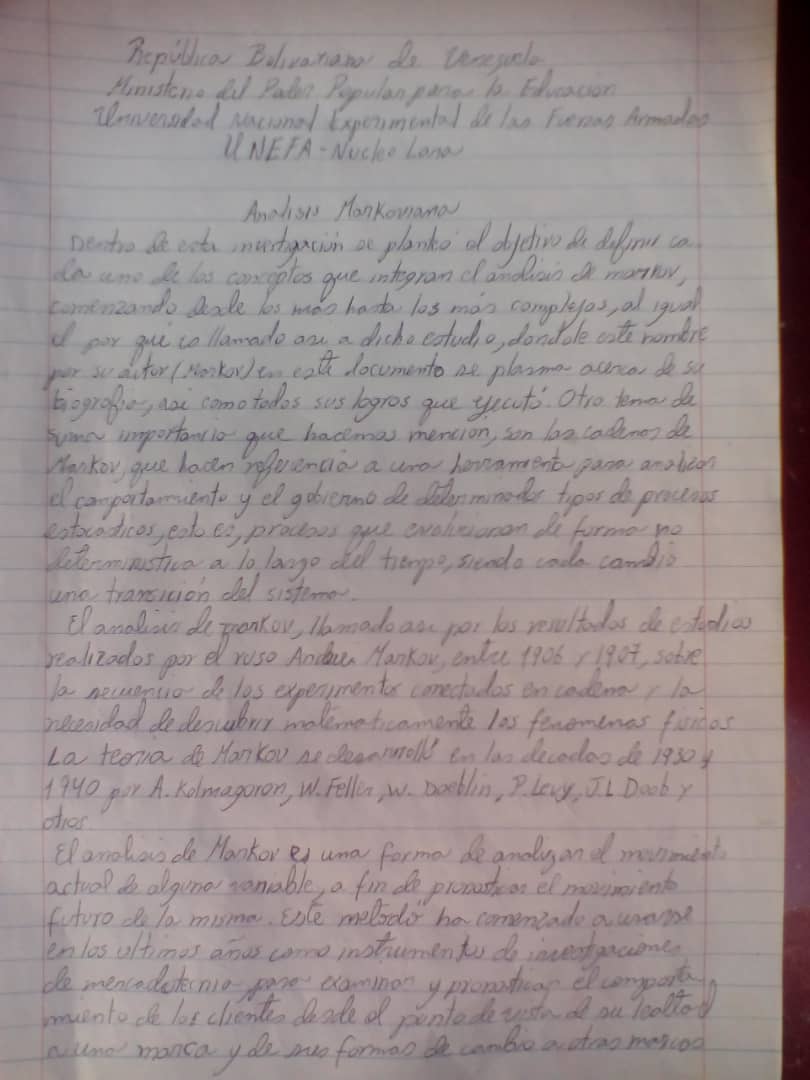 República Bolivariana de Venezuela
Ministerio del Poder Popular para la Educacion
Universidad Nacional Experimental de las Fuerzas Armadas
UNEFA - Nucleo Lara
Analisis Markoviana
Dentro de esta investigación se planteó el objetivo de definir ca
da uno de los conceptos que integran el análisis de markov,
comenzando desde los más hasta los más complejos, al igual
el por qué es llamado asi a dicho estudio, dandole este nombre
por su autor (Markov) en este documento se plasma acerca de su
biografia, asi como todos sus logros que ejecutó. Otro tema de
suma importancia que hacemos mención, son las cadenas de
Markov, que hacen referencia a una herramienta para analizar
el comportamiento y el gobierno de determinados tipos de procesos
estocásticos, esto es, procesos que evolucionan de forma no
deterministica a lo largo del tiempo, siendo cada cambio
una transición del sistema.
El analisis de markov, llamado asi por los resultados de estudios
realizados por el ruso Andrei Markov, entre 1906 y 1907, sobre
la secuencia de los experimentos conectados en cadena y la
necesidad de descubrir matematicamente los fenomenos fisicos
La teoria de Markov se desarrolló en las decadas de 1930 y
1940 por A. Kolmagoron, W. Feller, W. Doeblin, P. Levy, J.L Doob y
otros.
El analisis de Markov es una forma de analizar el movimiento
actual de alguna variable, a fin de pronosticar el movimiento
futuro de la misma. Este metodo ha comenzado a usarse
en los ultimos años como instrumentos de investigaciones
de mercadotecnia para examinar y pronosticar el comporta
miento de los clientes desde el punto de vista de su lealtad
a una marca y de sus formas de cambio a otras marcas